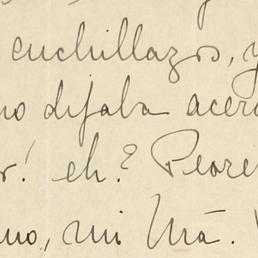 cuchillazos, y
no dejaba acer
r! eh? Peore
no, mi Ma.